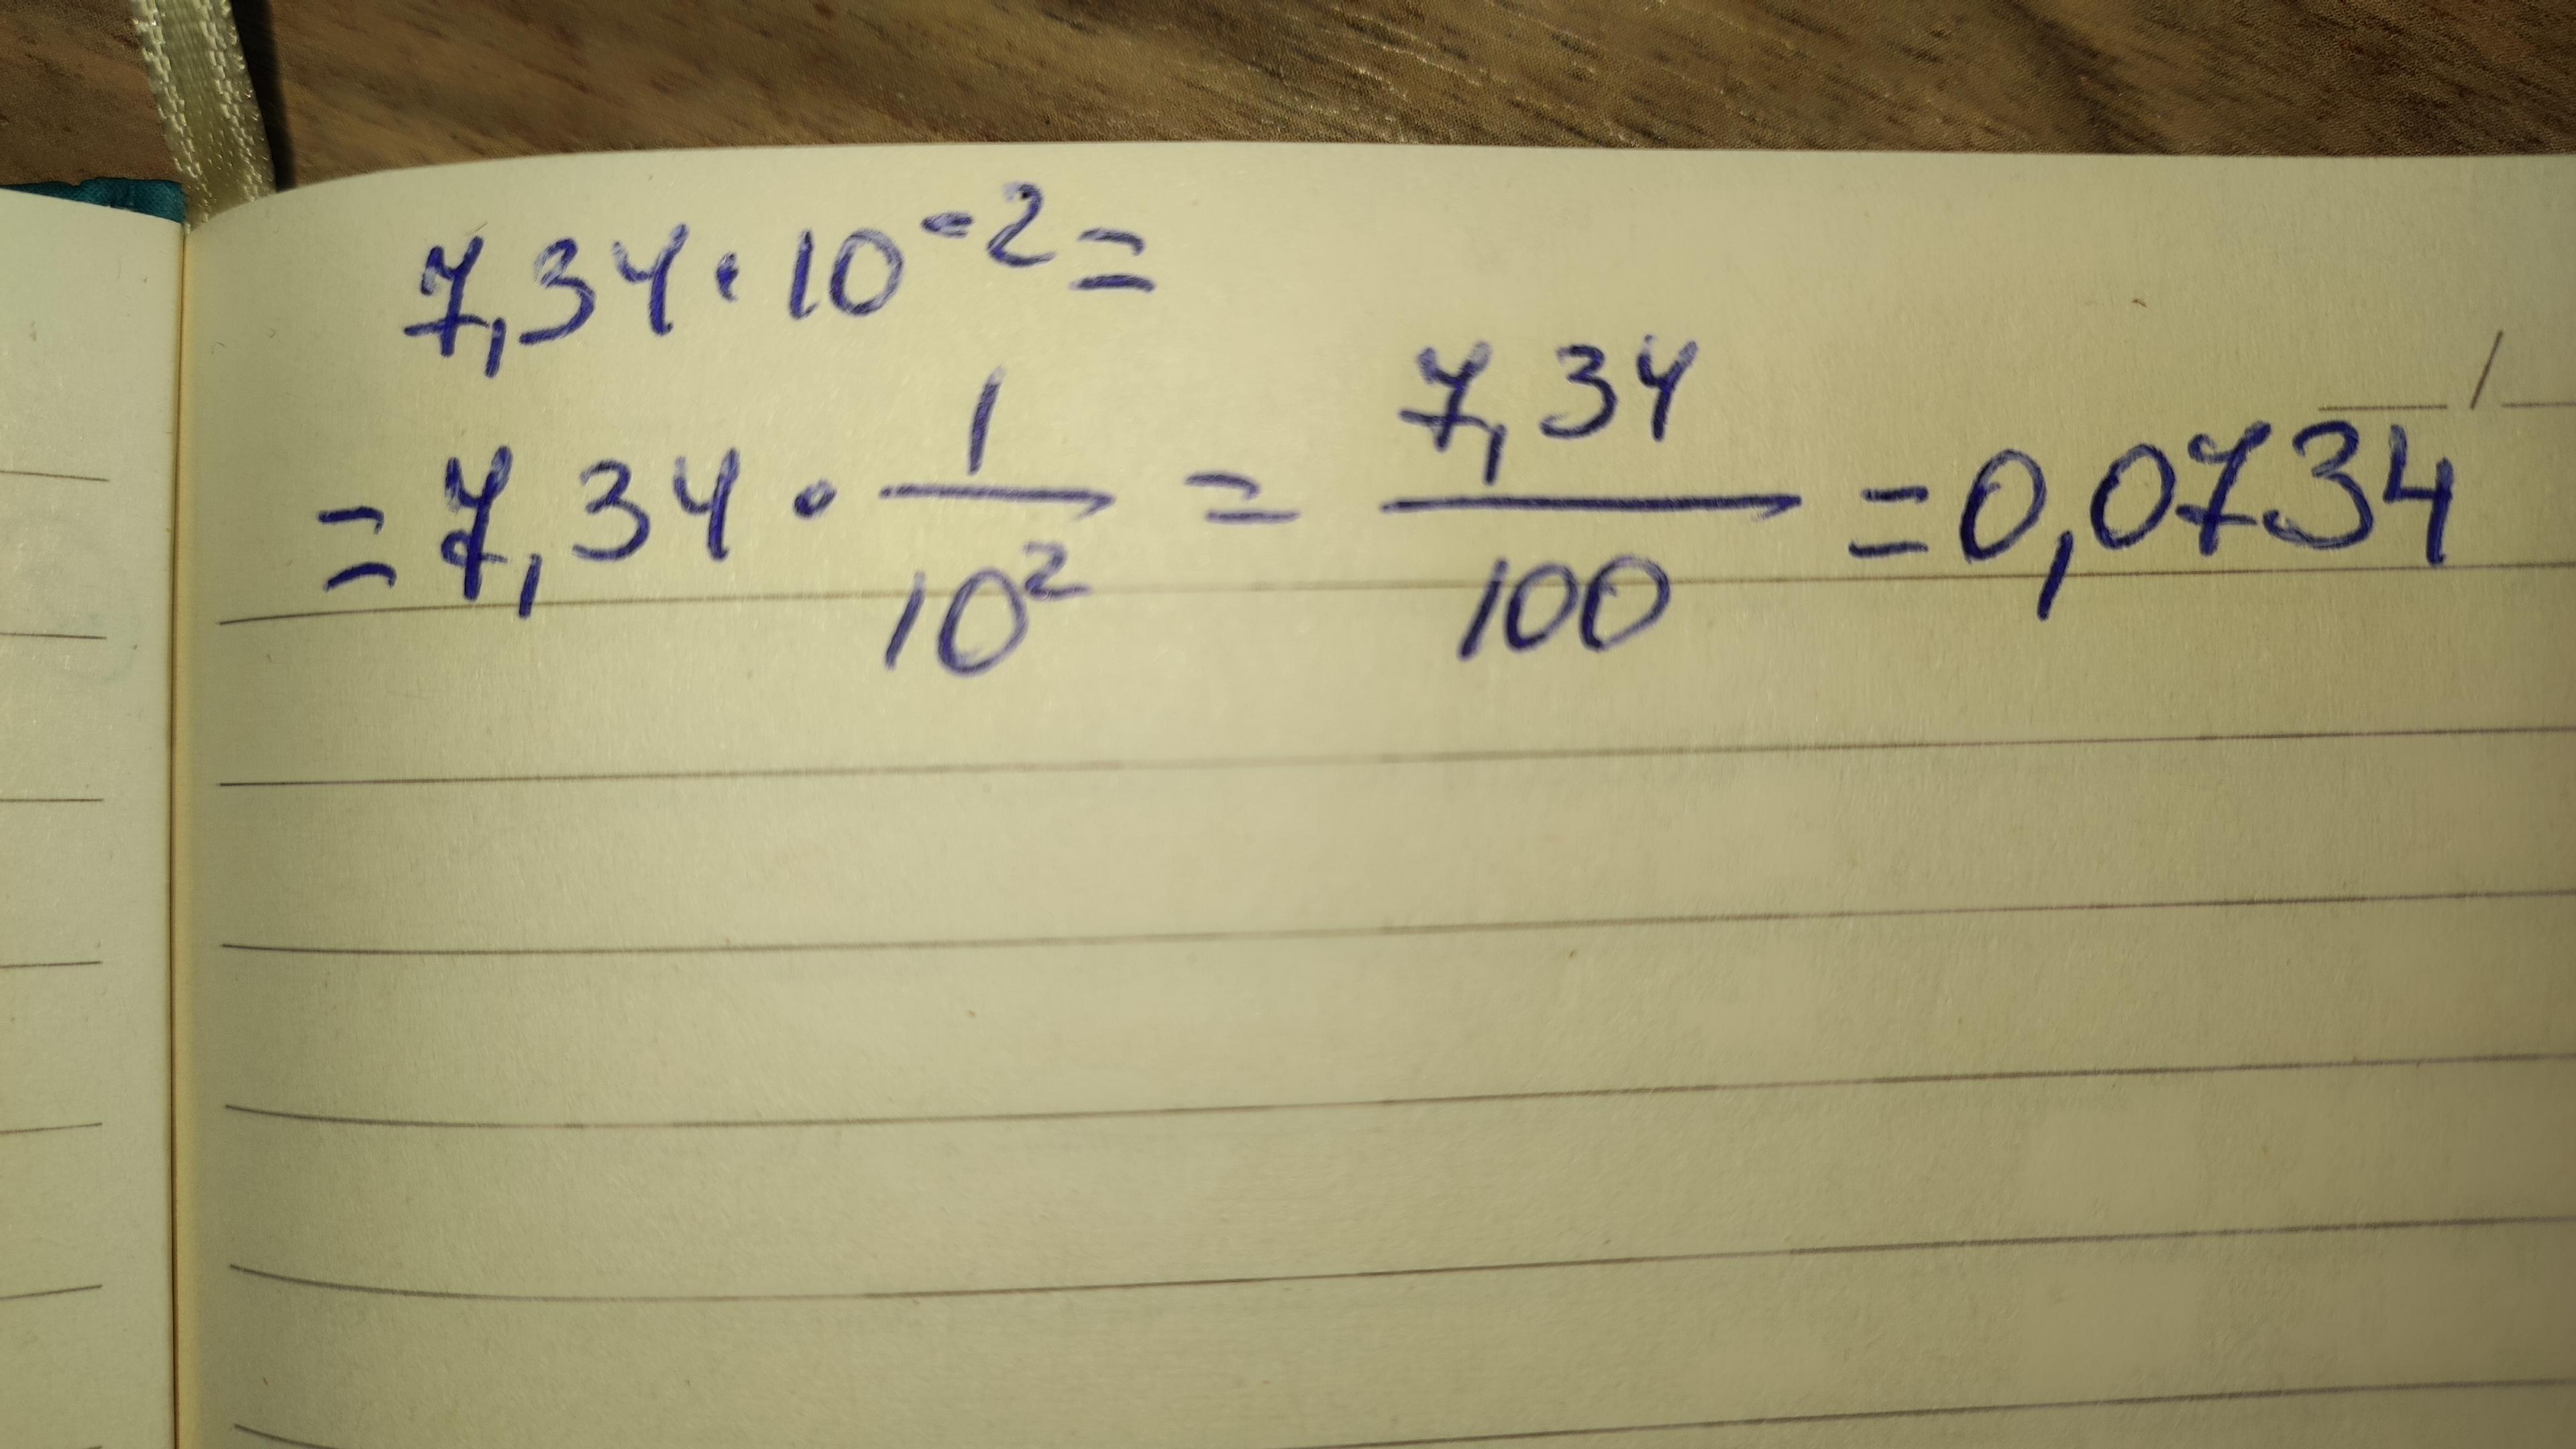 7,34·10⁻²=
=7,34·1/10²=7,34/100=0,0734